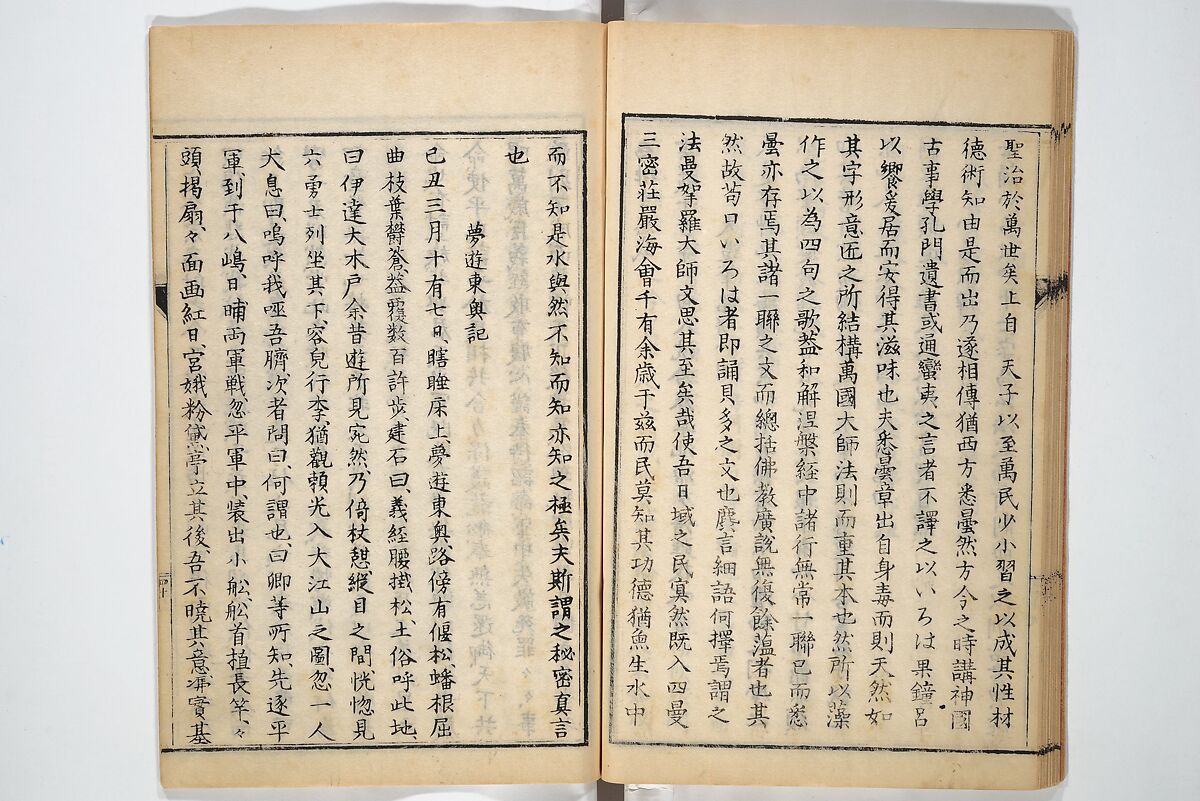 聖治於萬世矣上自　天子以至萬民少小習之以成其性材
德術知由是而出乃遂相傳猶西方悉曇然方今之時講神國
古事學孔門遺書或通蠻夷之言者不譯之以いろは果鐘呂
以饗爰居而安得其滋味也夫悉曇章出自身毒而則天然如
其字形意匠之所結構萬國大師法則而重其本也然所以藻
作之以為四句之歌蓋和解涅槃經中諸行無常一聯已而悉
曇亦存焉其諸一聯之文而總括佛教廣說無復餘薀者也其
然故苟口いろは者即誦貝多之文也麁言細語何擇焉謂之
法曼挐羅大師文思其至矣哉使吾日域之民冥然既入四曼
三密莊嚴海會千有余歲于茲而民莫知其功德猶魚生水中
而不知是水與然不知而知亦知之極矣夫斯謂之秘密真言
也
夢遊東奧記
己丑三月十有七日、瞎睡床上、夢遊東奧、路傍有偃松、蟠根屈
曲枝葉欝蒼、蓋覆数百許步、建石曰、義經腰掛松、土俗呼此地、
曰伊達大木戶余昔遊所見宛然、乃倚杖憇、縱目之間恍惚見
六勇士列坐其下、容皃行李、猶觀頼光入大江山之圖、忽一人
大息曰、嗚呼我哑吾臍次者問曰、何謂也、曰卿等所知、先逐平
軍、到于八嶋、日晡両軍戦忽平軍中、裝出小舩、舩首植長竿、々
頭、揭扇、々面画紅日、宮娥粉黛、亭立其後、吾不曉其意、漭實基